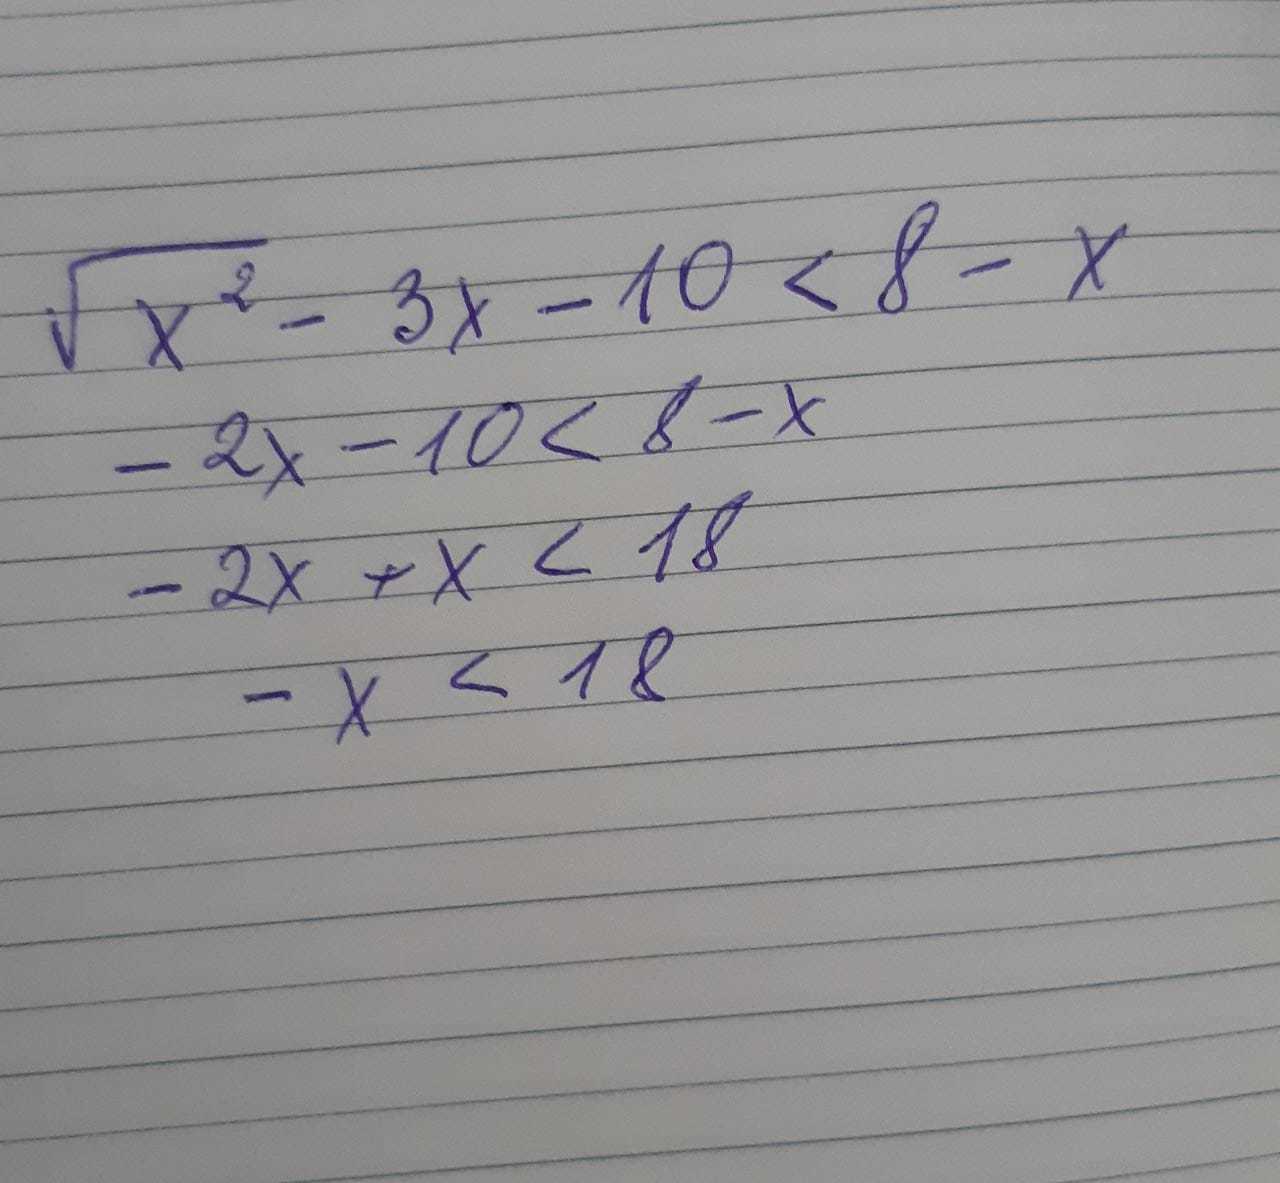 √x² - 3x - 10 < 8 - x
- 2x - 10 < 8 - x
- 2x + x < 18
- x < 18